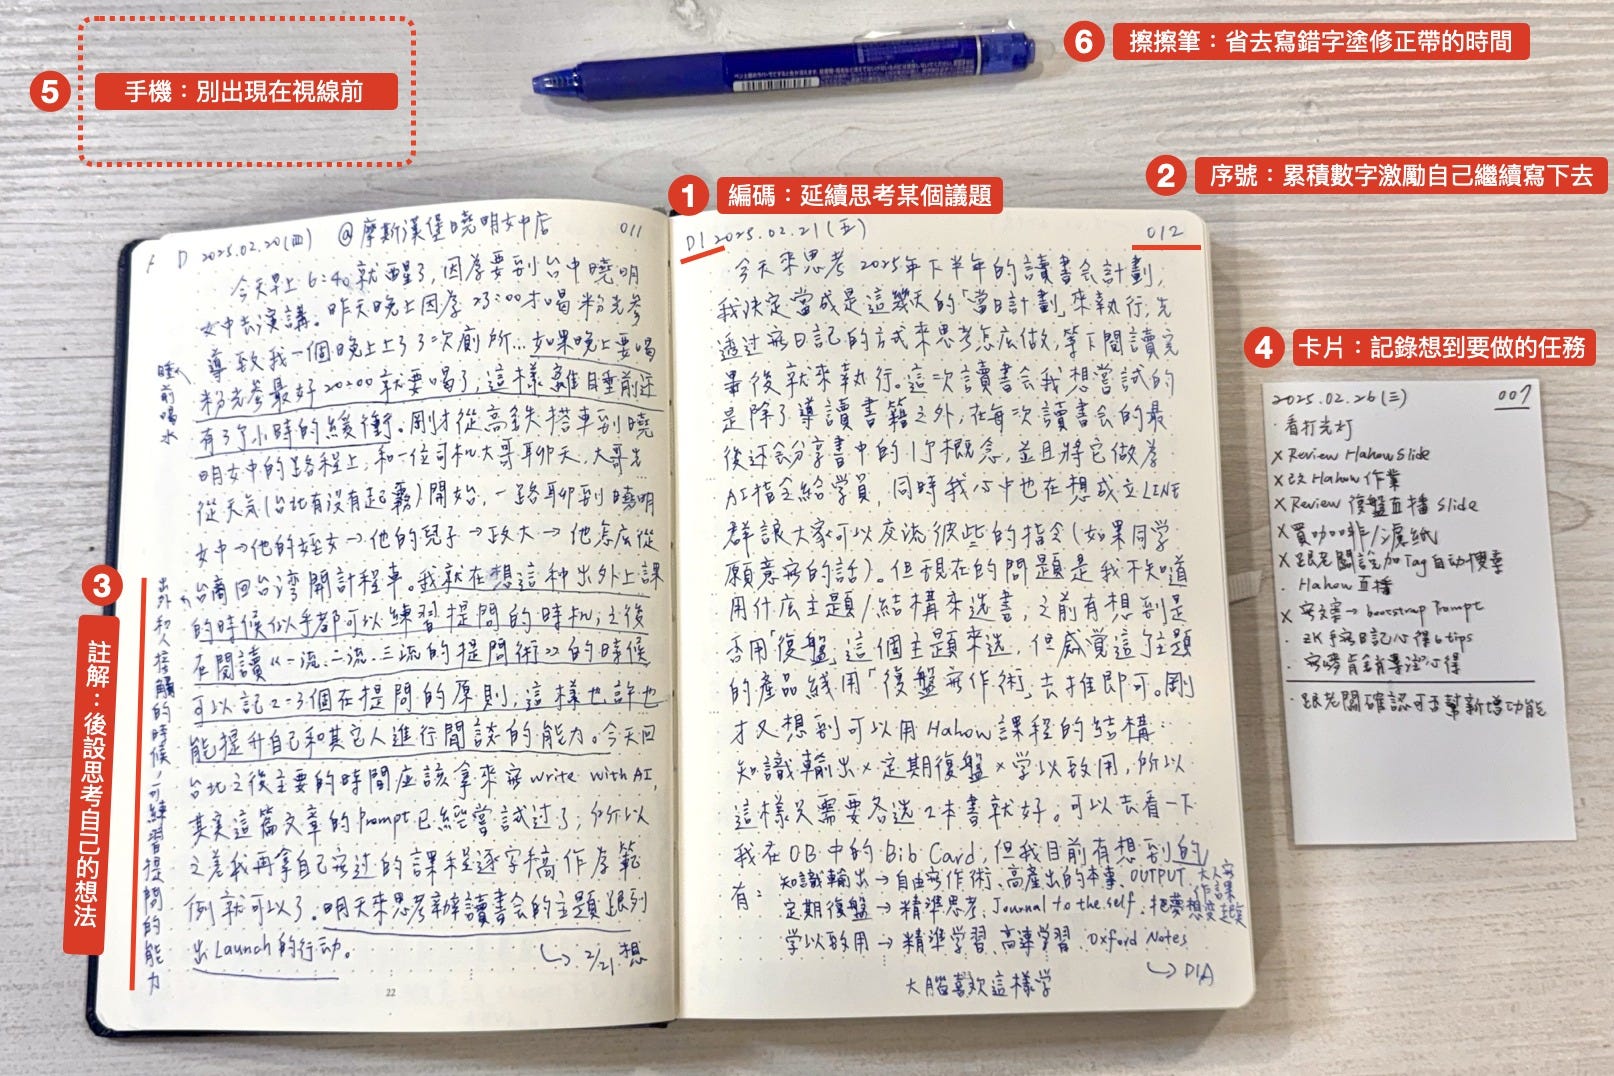 5 手機：別出現在視線前
6 擦擦筆：省去寫錯字塗修正帶的時間
1 編碼：延續思考某個議題
2 序號：累積數字激勵自己繼續寫下去
3 註解：後設思考自己的想法
4 卡片：記錄想到要做的任務
D 2025.02.20(四) @摩斯漢堡曉明女中店 011
今天早上6:40就醒了，因為要到台中曉明
女中去演講。昨天晚上因為23:00才喝
導致我一個晚上上了3次廁所…如果晚上要喝
最好20:00就要喝了，這樣離睡前還
有3個小時的緩衝。剛才從高鐵搭車到曉
明女中的路程上，和一位司机大哥聊天，大哥先
從天氣(台北有沒有起霧)開始，一路聊到曉明
女中→他的姪女→他的兒子→政大→他怎麼從
台商回台湾開計程車。我就在想這种出外上課
的時候似乎都可以練習提問的時机；之後
在閱讀《一流、二流、三流的提問術》的時候
可以記2~3個在提問的原則，這樣也許也
能提升自己和其它人進行閒談的能力。今天回
台北之後主要的時間應該拿來寫write with AI，
其实這篇文章的Prompt已經嘗試过了，所以
之差我再拿自己寫过的課程逐字稿作為範
例就可以了。明天來思考辦讀書会的主題跟列
出Launch的行动。
↳ 2/21想
睡前喝水
出外和人接觸的時候，可練習提問的能力
22
D1 2025.02.21(五) 012
今天來思考2025年下半年的讀書会計劃，
我決定當成是這幾天的「當日計劃」來執行，先
透过寫日記的方式來思考怎麼做，等下閱讀完
畢後就來執行。這次讀書会我想嘗試的
是除了導讀書籍之外，在每次讀書会的最
後还会分享書中的1個概念，並且將它做為
AI指令給学員，同時我心中也在想成立LINE
群讓大家可以交流彼些的指令(如果同学
願意寫的話)。但現在的問題是我不知道
用什麼主題/結構來选書，之前有想到是
否用「復盤」這個主題來选，但感觉這個主題
的產品线用「復盤寫作術」去推即可。剛
才又想到可以用Hahow課程的結構：
知識輸出×定期復盤×学以致用，所以
這樣只需要各选2本書就好。可以去看一下
我在OB中的Bib Card，但我目前有想到的
有： 知識輸出→自由寫作術、高產出的本事、OUTPUT、大人寫作課
定期復盤→精準思考、Journal to the self、把夢想變
学以致用→精準学習、高速学習、Oxford Notes
↳ D1A
大腦喜歡這樣学
2025.02.26(三) 007
·看打光灯
×Review Hahow Slide
×改Hahow作業
×Review復盤直播Slide
×買咖啡/濾紙
×跟老闆說加Tag自动搜尋
·Hahow直播
×寫文案→bootstrap Prompt
·ZK手寫日記心得6tips
·跟老闆確認可否幫新增功能